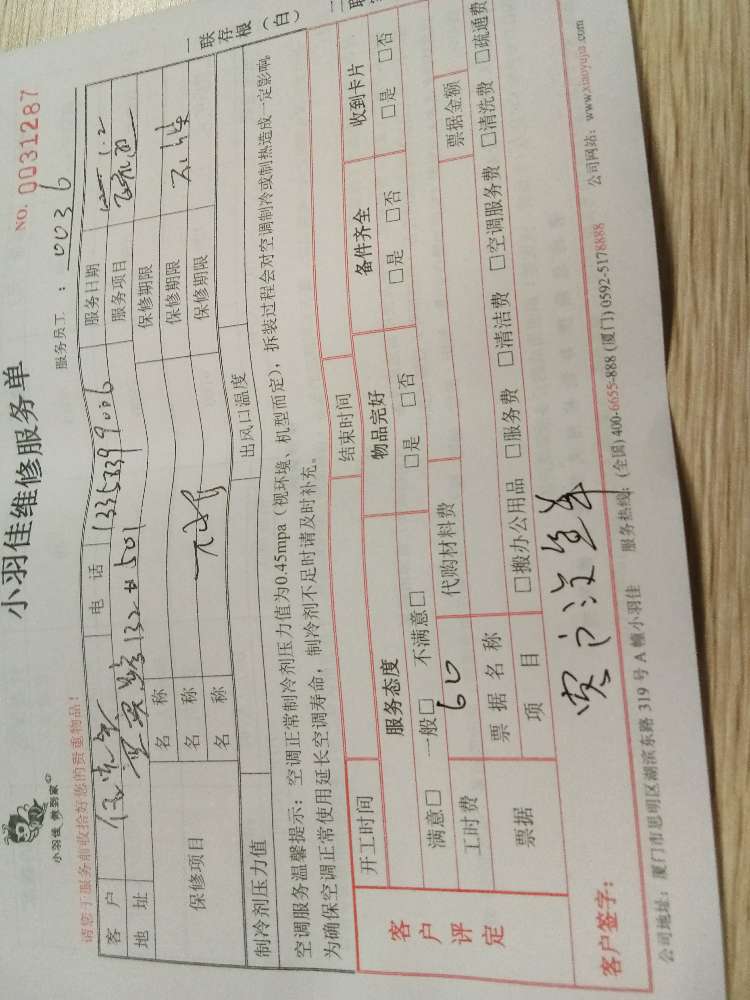 小羽佳 做到家
小羽佳维修服务单
NO. 0031287
服务员工：0036
请您于服务前收拾好您的贵重物品！
一联存根（白）
客户 电话 13358399006 服务日期 1.2
地址 132# 501 服务项目
保修项目 名称 保修期限
名称 保修期限
名称 保修期限
制冷剂压力值 出风口温度
空调服务温馨提示：空调正常制冷剂压力值为0.45mpa（视环境、机型而定），拆装过程会对空调制冷或制热造成一定影响。
为确保空调正常使用延长空调寿命，制冷剂不足时请及时补充。
客户评定 开工时间 结束时间
服务态度 物品完好 备件齐全 收到卡片
满意□ 一般□ 不满意□ □是 □否 □是 □否 □是 □否
工时费 60 代购材料费 票据金额
票据 票据名称
项目 □搬办公用品 □服务费 □清洁费 □空调服务费 □清洗费 □疏通费
客户签字：
公司地址：厦门市思明区湖滨东路 319 号 A 幢小羽佳 服务热线：(全国) 400-6655-888 (厦门) 0592-5178888 公司网站：www.xiaoyujia.com